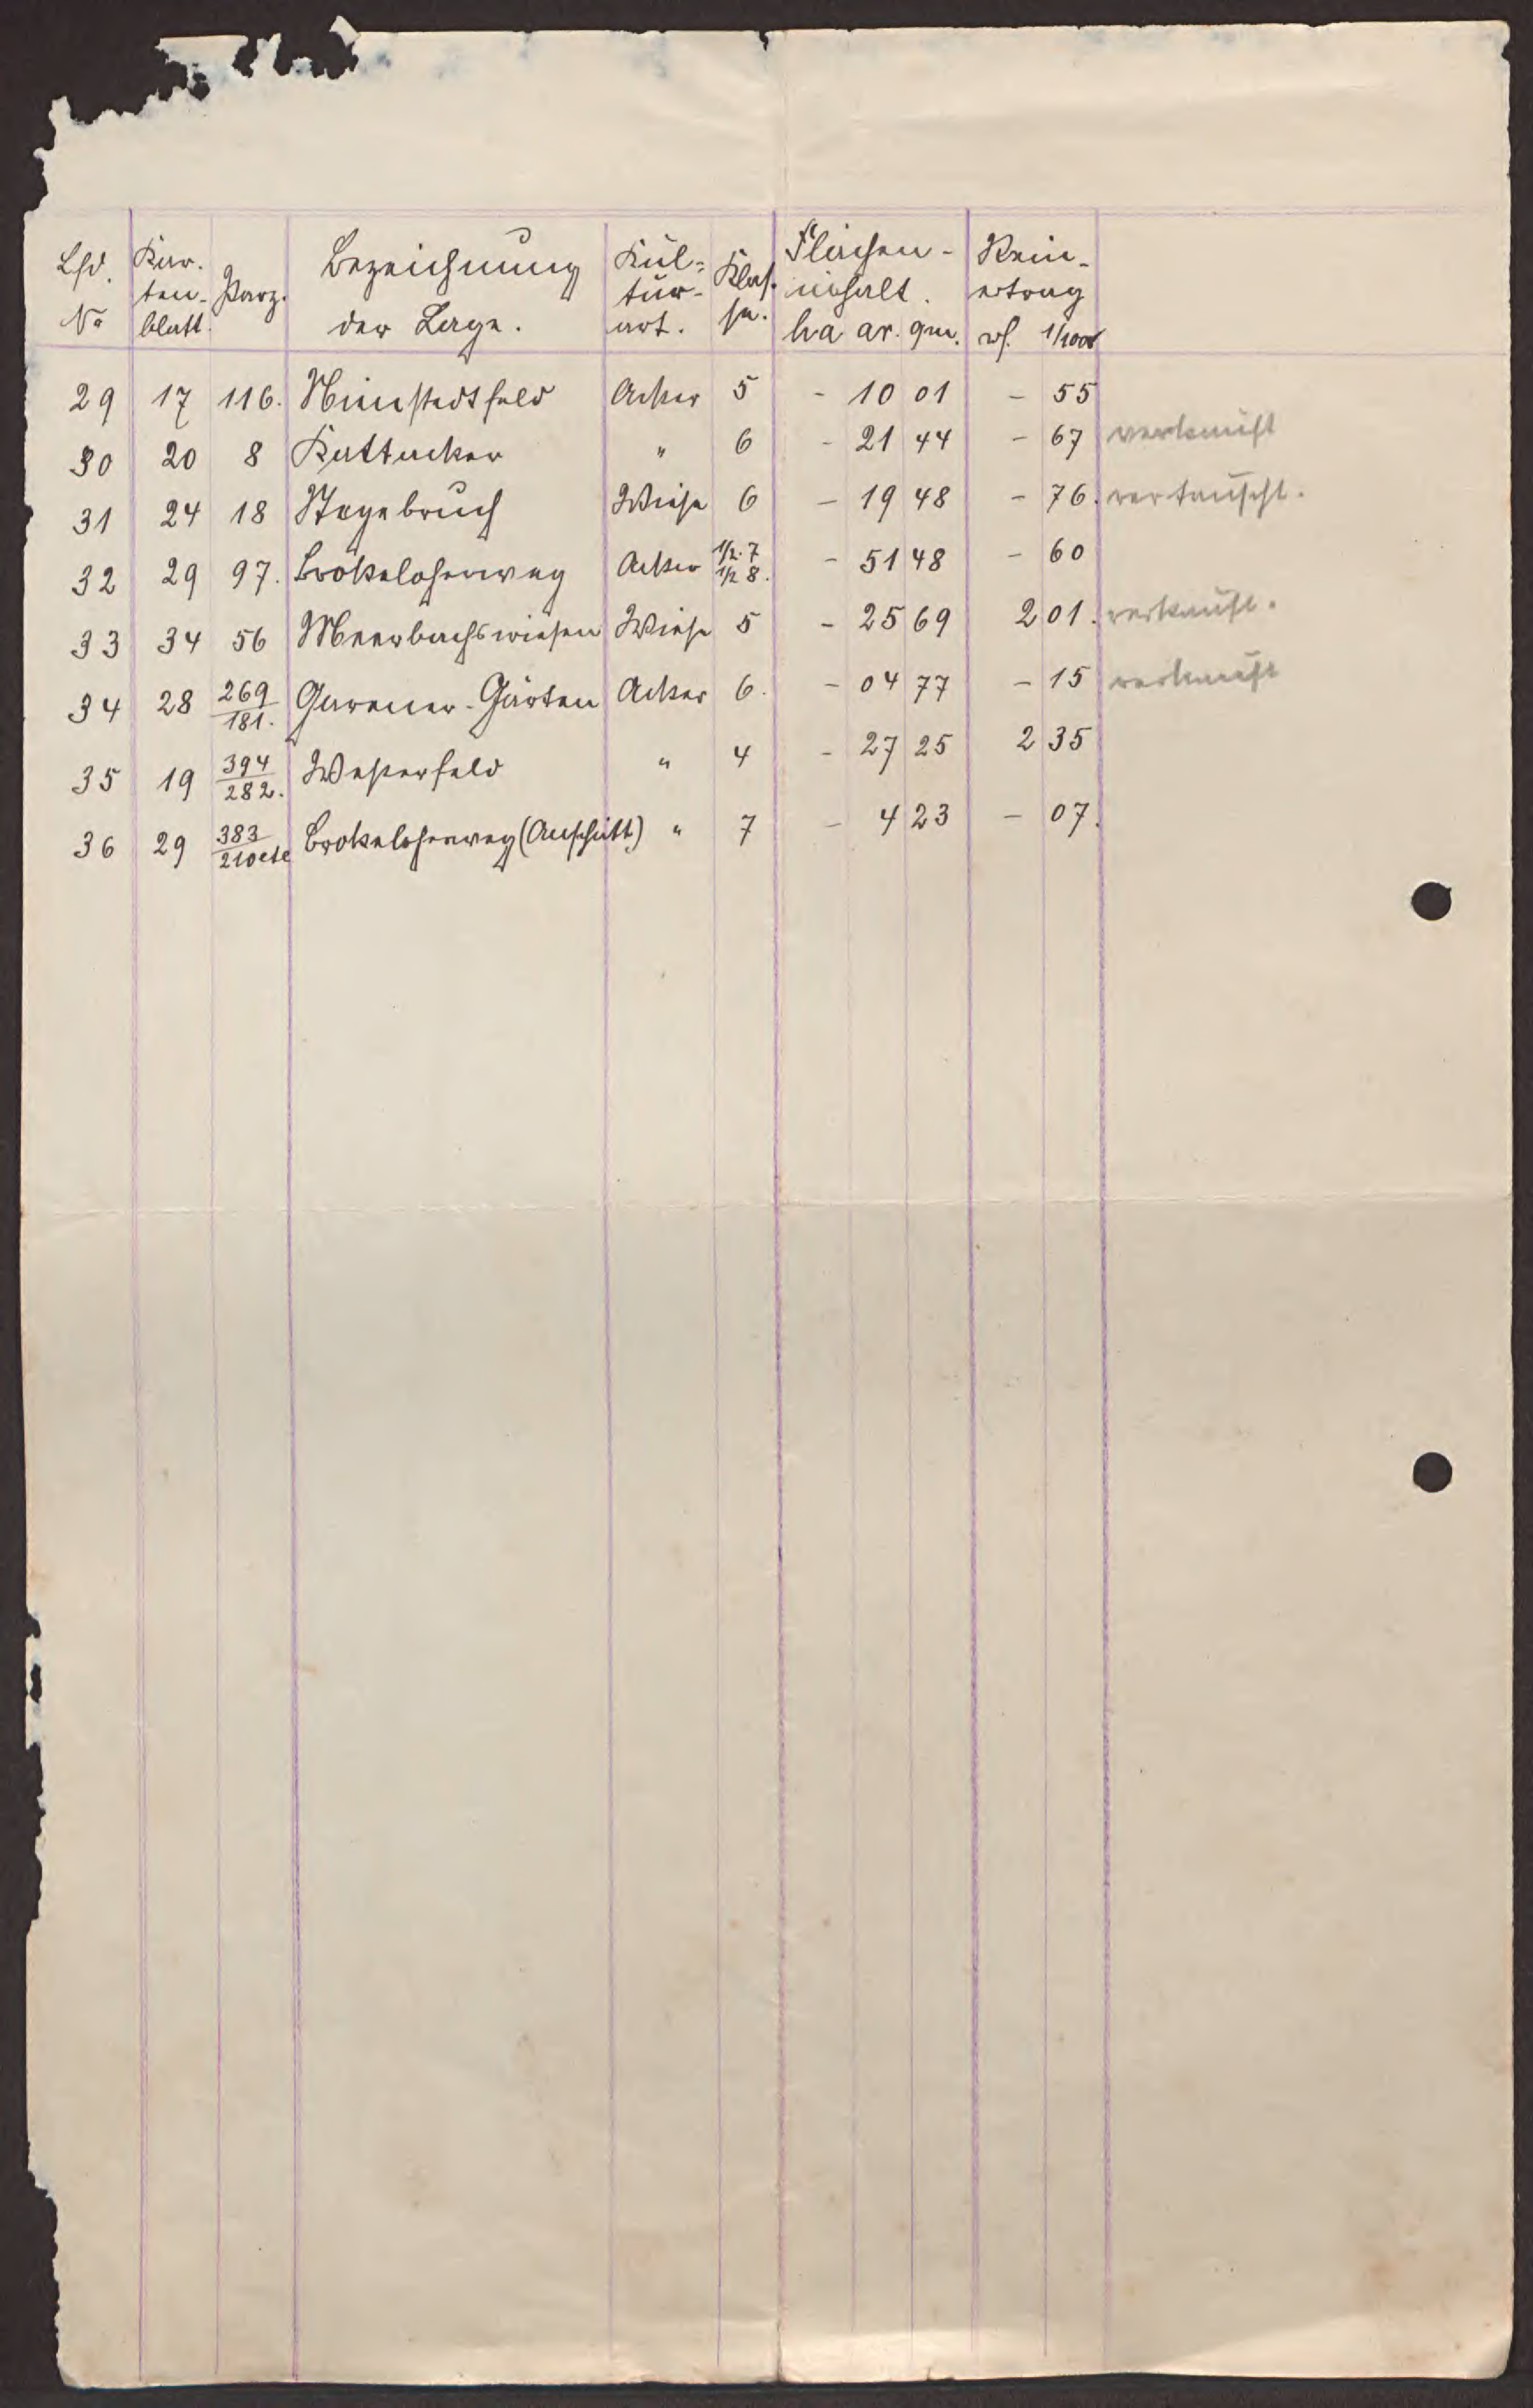 Lfd. No Kartenblatt. Parz. Bezeichnung der Lage. Kulturart. Klasse. Flächeninhalt. ha ar. qm. Reinertrag 1/100
29 17 116. Acker 5 - 10 01 - 55
30 20 8 Kattacker " 6 - 21 44 - 67 verkauft
31 24 18 Wiese 6 - 19 48 - 76. vertauscht.
32 29 97. Brokeloherweg Acker 1/2. 7 1/2 8. - 51 48 - 60
33 34 56 Meerbachswiesen Wiese 5 - 25 69 2 01. verkauft.
34 28 269/181. Gärten Acker 6. - 04 77 - 15 verkauft
35 19 394/282. Weßerfeld " 4 - 27 25 2 35
36 29 383/210 etc Brokeloherweg (Anschütt) " 7 - 4 23 - 07.